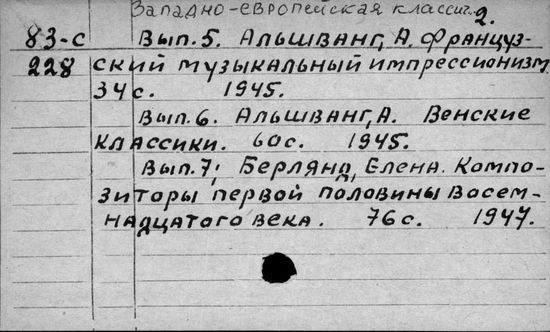 Западно-европейская классич. 2.
83-с Вып.5. Альшванг, А. Француз-
228 ский музыкальный импрессионизм.
34с. 1945.
Вып.6. Альшванг, А. Венские
классики. 60с. 1945.
Вып.7; Берлянд, Елена. Компо-
зиторы первой половины восем-
надцатого века. 76с. 1947.